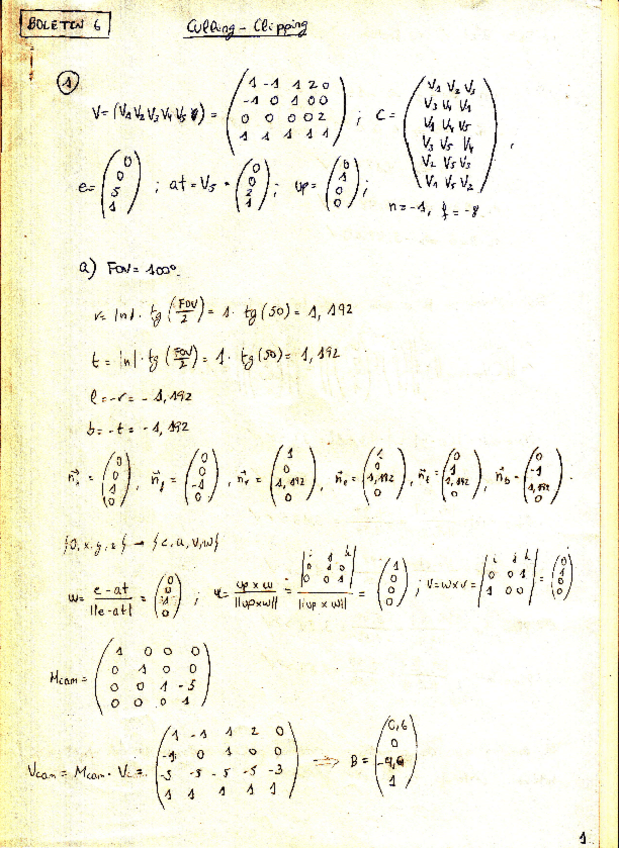 BOLETIN 6
Culling - Clipping
1
V = (V1 V2 V3 V4 V5) = ( 1 -1 1 2 0
-1 0 1 0 0
0 0 0 0 2
1 1 1 1 1 ) ; C = ( V1 V2 V3
V3 V4 V1
V1 V4 V5
V3 V5 V4
V2 V5 V3
V1 V5 V2 ) ,
e = ( 0
0
5
1 ) ; at = V5 = ( 0
0
2
1 ) ; up = ( 0
1
0
0 ) ;
n = -1, f = -8
a) FOV = 100º.
r = |n| · tg (FOV/2) = 1 · tg (50) = 1,192
t = |n| · tg (FOV/2) = 1 · tg (50) = 1,192
l = -r = -1,192
b = -t = -1,192
( 0
0
1
0 ) , nf = ( 0
0
-1
0 ) , nr = ( 1
0
1,192
0 ) , ( 1,192
0 ) , nt = ( 0
1
1,192
0 ) , nb = ( 0
-1
1,192
0 ) .
{0, x, y, z} → {e, u, v, w}
w = e - at / ||e - at|| = ( 0
0
1
0 ) ; u = up x w / ||up x w|| = | i j k
0 1 0
0 0 1 | / ||up x w|| = ( 1
0
0
0 ) ; V = w x u = | i j k
0 0 1
1 0 0 | = ( 0
1
0
0 )
Mcam = ( 1 0 0 0
0 1 0 0
0 0 1 -5
0 0 0 1 )
Vcam = Mcam · Vi = ( 1 -1 1 2 0
-1 0 1 0 0
-5 -5 -5 -5 -3
1 1 1 1 1 ) ⇒ B = ( 0,6
0
1 )
1